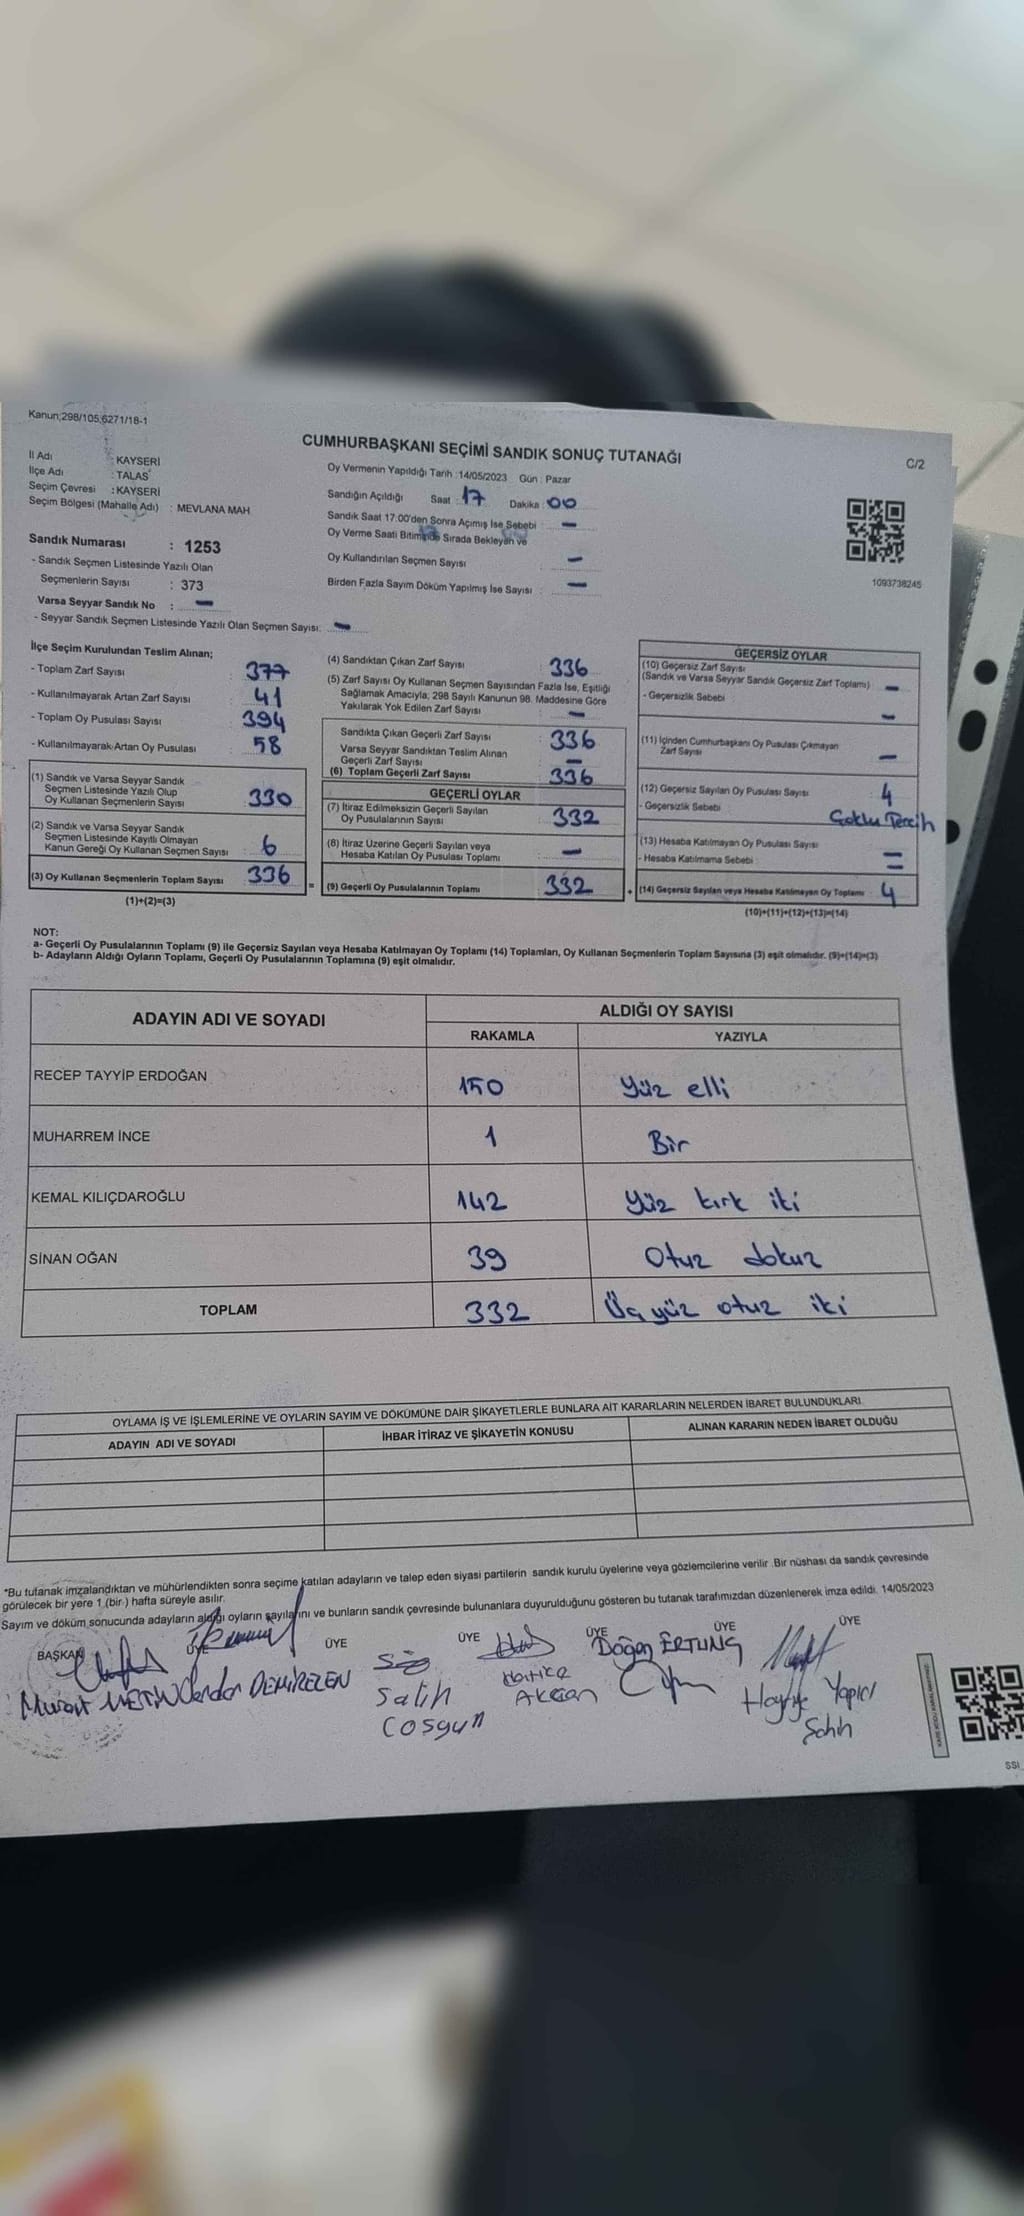 Kanun;298/105,6271/18-1
CUMHURBAŞKANI SEÇİMİ SANDIK SONUÇ TUTANAĞI
C/2
İl Adı : KAYSERİ
İlçe Adı : TALAS
Seçim Çevresi : KAYSERİ
Seçim Bölgesi (Mahalle Adı) : MEVLANA MAH
Oy Vermenin Yapıldığı Tarih :14/05/2023 Gün : Pazar
Sandığın Açıldığı Saat : 17 Dakika : 00
Sandık Saat 17:00'den Sonra Açımış İse Sebebi : -
Oy Verme Saati Bitiminde Sırada Bekleyen ve
Oy Kullandırılan Seçmen Sayısı : -
Birden Fazla Sayım Döküm Yapılmış İse Sayısı : -
1093738245
Sandık Numarası : 1253
- Sandık Seçmen Listesinde Yazılı Olan
Seçmenlerin Sayısı : 373
Varsa Seyyar Sandık No : -
- Seyyar Sandık Seçmen Listesinde Yazılı Olan Seçmen Sayısı: -
İlçe Seçim Kurulundan Teslim Alınan;
- Toplam Zarf Sayısı : 377
- Kullanılmayarak Artan Zarf Sayısı : 41
- Toplam Oy Pusulası Sayısı : 394
- Kullanılmayarak Artan Oy Pusulası : 58
(1) Sandık ve Varsa Seyyar Sandık
Seçmen Listesinde Yazılı Olup
Oy Kullanan Seçmenlerin Sayısı : 330
(2) Sandık ve Varsa Seyyar Sandık
Seçmen Listesinde Kayıtlı Olmayan
Kanun Gereği Oy Kullanan Seçmen Sayısı : 6
(3) Oy Kullanan Seçmenlerin Toplam Sayısı : 336
(1)+(2)=(3)
(4) Sandıktan Çıkan Zarf Sayısı : 336
(5) Zarf Sayısı Oy Kullanan Seçmen Sayısından Fazla İse, Eşitliği
Sağlamak Amacıyla; 298 Sayılı Kanunun 98. Maddesine Göre
Yakılarak Yok Edilen Zarf Sayısı : -
Sandıkta Çıkan Geçerli Zarf Sayısı : 336
Varsa Seyyar Sandıktan Teslim Alınan
Geçerli Zarf Sayısı : -
(6) Toplam Geçerli Zarf Sayısı : 336
GEÇERLİ OYLAR
(7) İtiraz Edilmeksizin Geçerli Sayılan
Oy Pusulalarının Sayısı : 332
(8) İtiraz Üzerine Geçerli Sayılan veya
Hesaba Katılan Oy Pusulası Toplamı : -
= (9) Geçerli Oy Pusulalarının Toplamı : 332
GEÇERSİZ OYLAR
(10) Geçersiz Zarf Sayısı
(Sandık ve Varsa Seyyar Sandık Geçersiz Zarf Toplamı) : -
- Geçersizlik Sebebi : -
(11) İçinden Cumhurbaşkanı Oy Pusulası Çıkmayan
Zarf Sayısı : -
(12) Geçersiz Sayılan Oy Pusulası Sayısı : 4
- Geçersizlik Sebebi : Çoklu Tercih
(13) Hesaba Katılmayan Oy Pusulası Sayısı : -
- Hesaba Katılmama Sebebi : -
+ (14) Geçersiz Sayılan veya Hesaba Katılmayan Oy Toplamı : 4
(10)+(11)+(12)+(13)=(14)
NOT:
a- Geçerli Oy Pusulalarının Toplamı (9) ile Geçersiz Sayılan veya Hesaba Katılmayan Oy Toplamı (14) Toplamları, Oy Kullanan Seçmenlerin Toplam Sayısına (3) eşit olmalıdır. (9)+(14)=(3)
b- Adayların Aldığı Oyların Toplamı, Geçerli Oy Pusulalarının Toplamına (9) eşit olmalıdır.
ADAYIN ADI VE SOYADI
ALDIĞI OY SAYISI
RAKAMLA YAZIYLA
RECEP TAYYİP ERDOĞAN 150 Yüz elli
MUHARREM İNCE 1 Bir
KEMAL KILIÇDAROĞLU 142 Yüz kırk iki
SİNAN OĞAN 39 Otuz dokuz
TOPLAM 332 Üç yüz otuz iki
OYLAMA İŞ VE İŞLEMLERİNE VE OYLARIN SAYIM VE DÖKÜMÜNE DAİR ŞİKAYETLERLE BUNLARA AİT KARARLARIN NELERDEN İBARET BULUNDUKLARI
ADAYIN ADI VE SOYADI İHBAR İTİRAZ VE ŞİKAYETİN KONUSU ALINAN KARARIN NEDEN İBARET OLDUĞU
*Bu tutanak imzalandıktan ve mühürlendikten sonra seçime katılan adayların ve talep eden siyasi partilerin sandık kurulu üyelerine veya gözlemcilerine verilir. Bir nüshası da sandık çevresinde
görülecek bir yere 1 (bir) hafta süreyle asılır.
Sayım ve döküm sonucunda adayların aldığı oyların sayılarını ve bunların sandık çevresinde bulunanlara duyurulduğunu gösteren bu tutanak tarafımızdan düzenlenerek imza edildi. 14/05/2023
BAŞKAN ÜYE ÜYE ÜYE ÜYE ÜYE ÜYE
Murat METİN
DEMİREZEN
Salih
Coşgun
Hatice
Akcan
Doğan ERTUNÇ
Yapıcı
Şahin
SSI